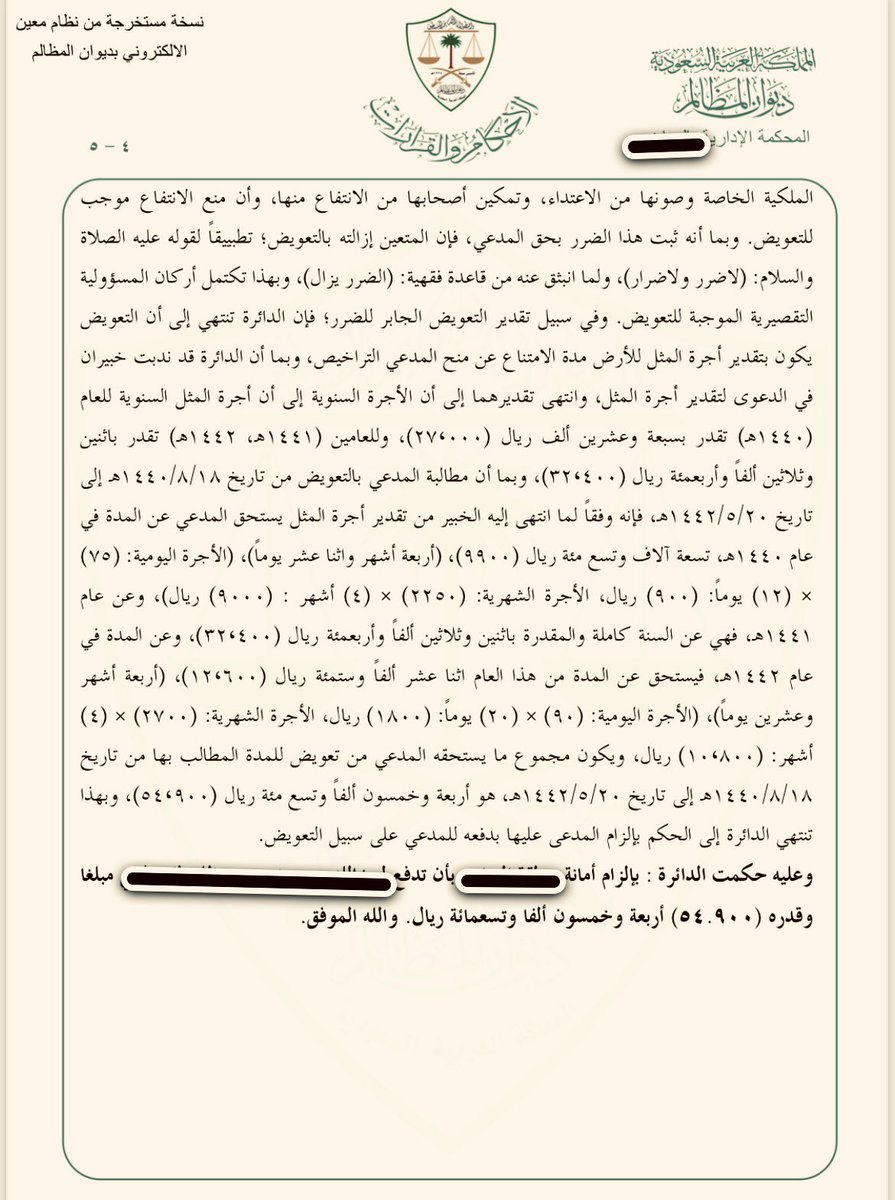 نسخة مستخرجة من نظام معين
الالكتروني بديوان المظالم
المملكة العربية السعودية
ديوان المظالم
المحكمة الإدارية
الأحكام والقرارات
٤ - ٥
الملكية الخاصة وصونها من الاعتداء، وتمكين أصحابها من الانتفاع منها، وأن منع الانتفاع موجب
للتعويض. وبما أنه ثبت هذا الضرر بحق المدعي، فإن المتعين إزالته بالتعويض؛ تطبيقاً لقوله عليه الصلاة
والسلام: (لاضرر ولاضرار)، ولما انبثق عنه من قاعدة فقهية: (الضرر يزال)، وبهذا تكتمل أركان المسؤولية
التقصيرية الموجبة للتعويض. وفي سبيل تقدير التعويض الجابر للضرر؛ فإن الدائرة تنتهي إلى أن التعويض
يكون بتقدير أجرة المثل للأرض مدة الامتناع عن منح المدعي التراخيص، وبما أن الدائرة قد ندبت خبيران
في الدعوى لتقدير أجرة المثل، وانتهى تقديرهما إلى أن الأجرة السنوية إلى أن أجرة المثل السنوية للعام
(١٤٤٠هـ) تقدر بسبعة وعشرين ألف ريال (٢٧،٠٠٠)، وللعامين (١٤٤١هـ، ١٤٤٢هـ) تقدر باثنين
وثلاثين ألفاً وأربعمئة ريال (٣٢،٤٠٠)، وبما أن مطالبة المدعي بالتعويض من تاريخ ١٤٤٠/٨/١٨هـ إلى
تاريخ ١٤٤٢/٥/٢٠هـ، فإنه وفقاً لما انتهى إليه الخبير من تقدير أجرة المثل يستحق المدعي عن المدة في
عام ١٤٤٠هـ، تسعة آلاف وتسع مئة ريال (٩٩٠٠)، (أربعة أشهر واثنا عشر يوماً)، (الأجرة اليومية: (٧٥)
× (١٢) يوماً: (٩٠٠) ريال، الأجرة الشهرية: (٢٢٥٠) × (٤) أشهر : (٩٠٠٠) ريال)، وعن عام
١٤٤١هـ، فهي عن السنة كاملة والمقدرة باثنين وثلاثين ألفاً وأربعمئة ريال (٣٢،٤٠٠)، وعن المدة في
عام ١٤٤٢هـ، فيستحق عن المدة من هذا العام اثنا عشر ألفاً وستمئة ريال (١٢،٦٠٠)، (أربعة أشهر
وعشرين يوماً)، (الأجرة اليومية: (٩٠) × (٢٠) يوماً: (١٨٠٠) ريال، الأجرة الشهرية: (٢٧٠٠) × (٤)
أشهر: (١٠،٨٠٠) ريال، ويكون مجموع ما يستحقه المدعي من تعويض للمدة المطالب بها من تاريخ
١٤٤٠/٨/١٨هـ إلى تاريخ ١٤٤٢/٥/٢٠هـ، هو أربعة وخمسون ألفاً وتسع مئة ريال (٥٤،٩٠٠)، وبهذا
تنتهي الدائرة إلى الحكم بإلزام المدعى عليها بدفعه للمدعي على سبيل التعويض.
وعليه حكمت الدائرة : بإلزام أمانة بأن تدفع مبلغا
وقدره (٥٤.٩٠٠) أربعة وخمسون ألفا وتسعمائة ريال. والله الموفق.